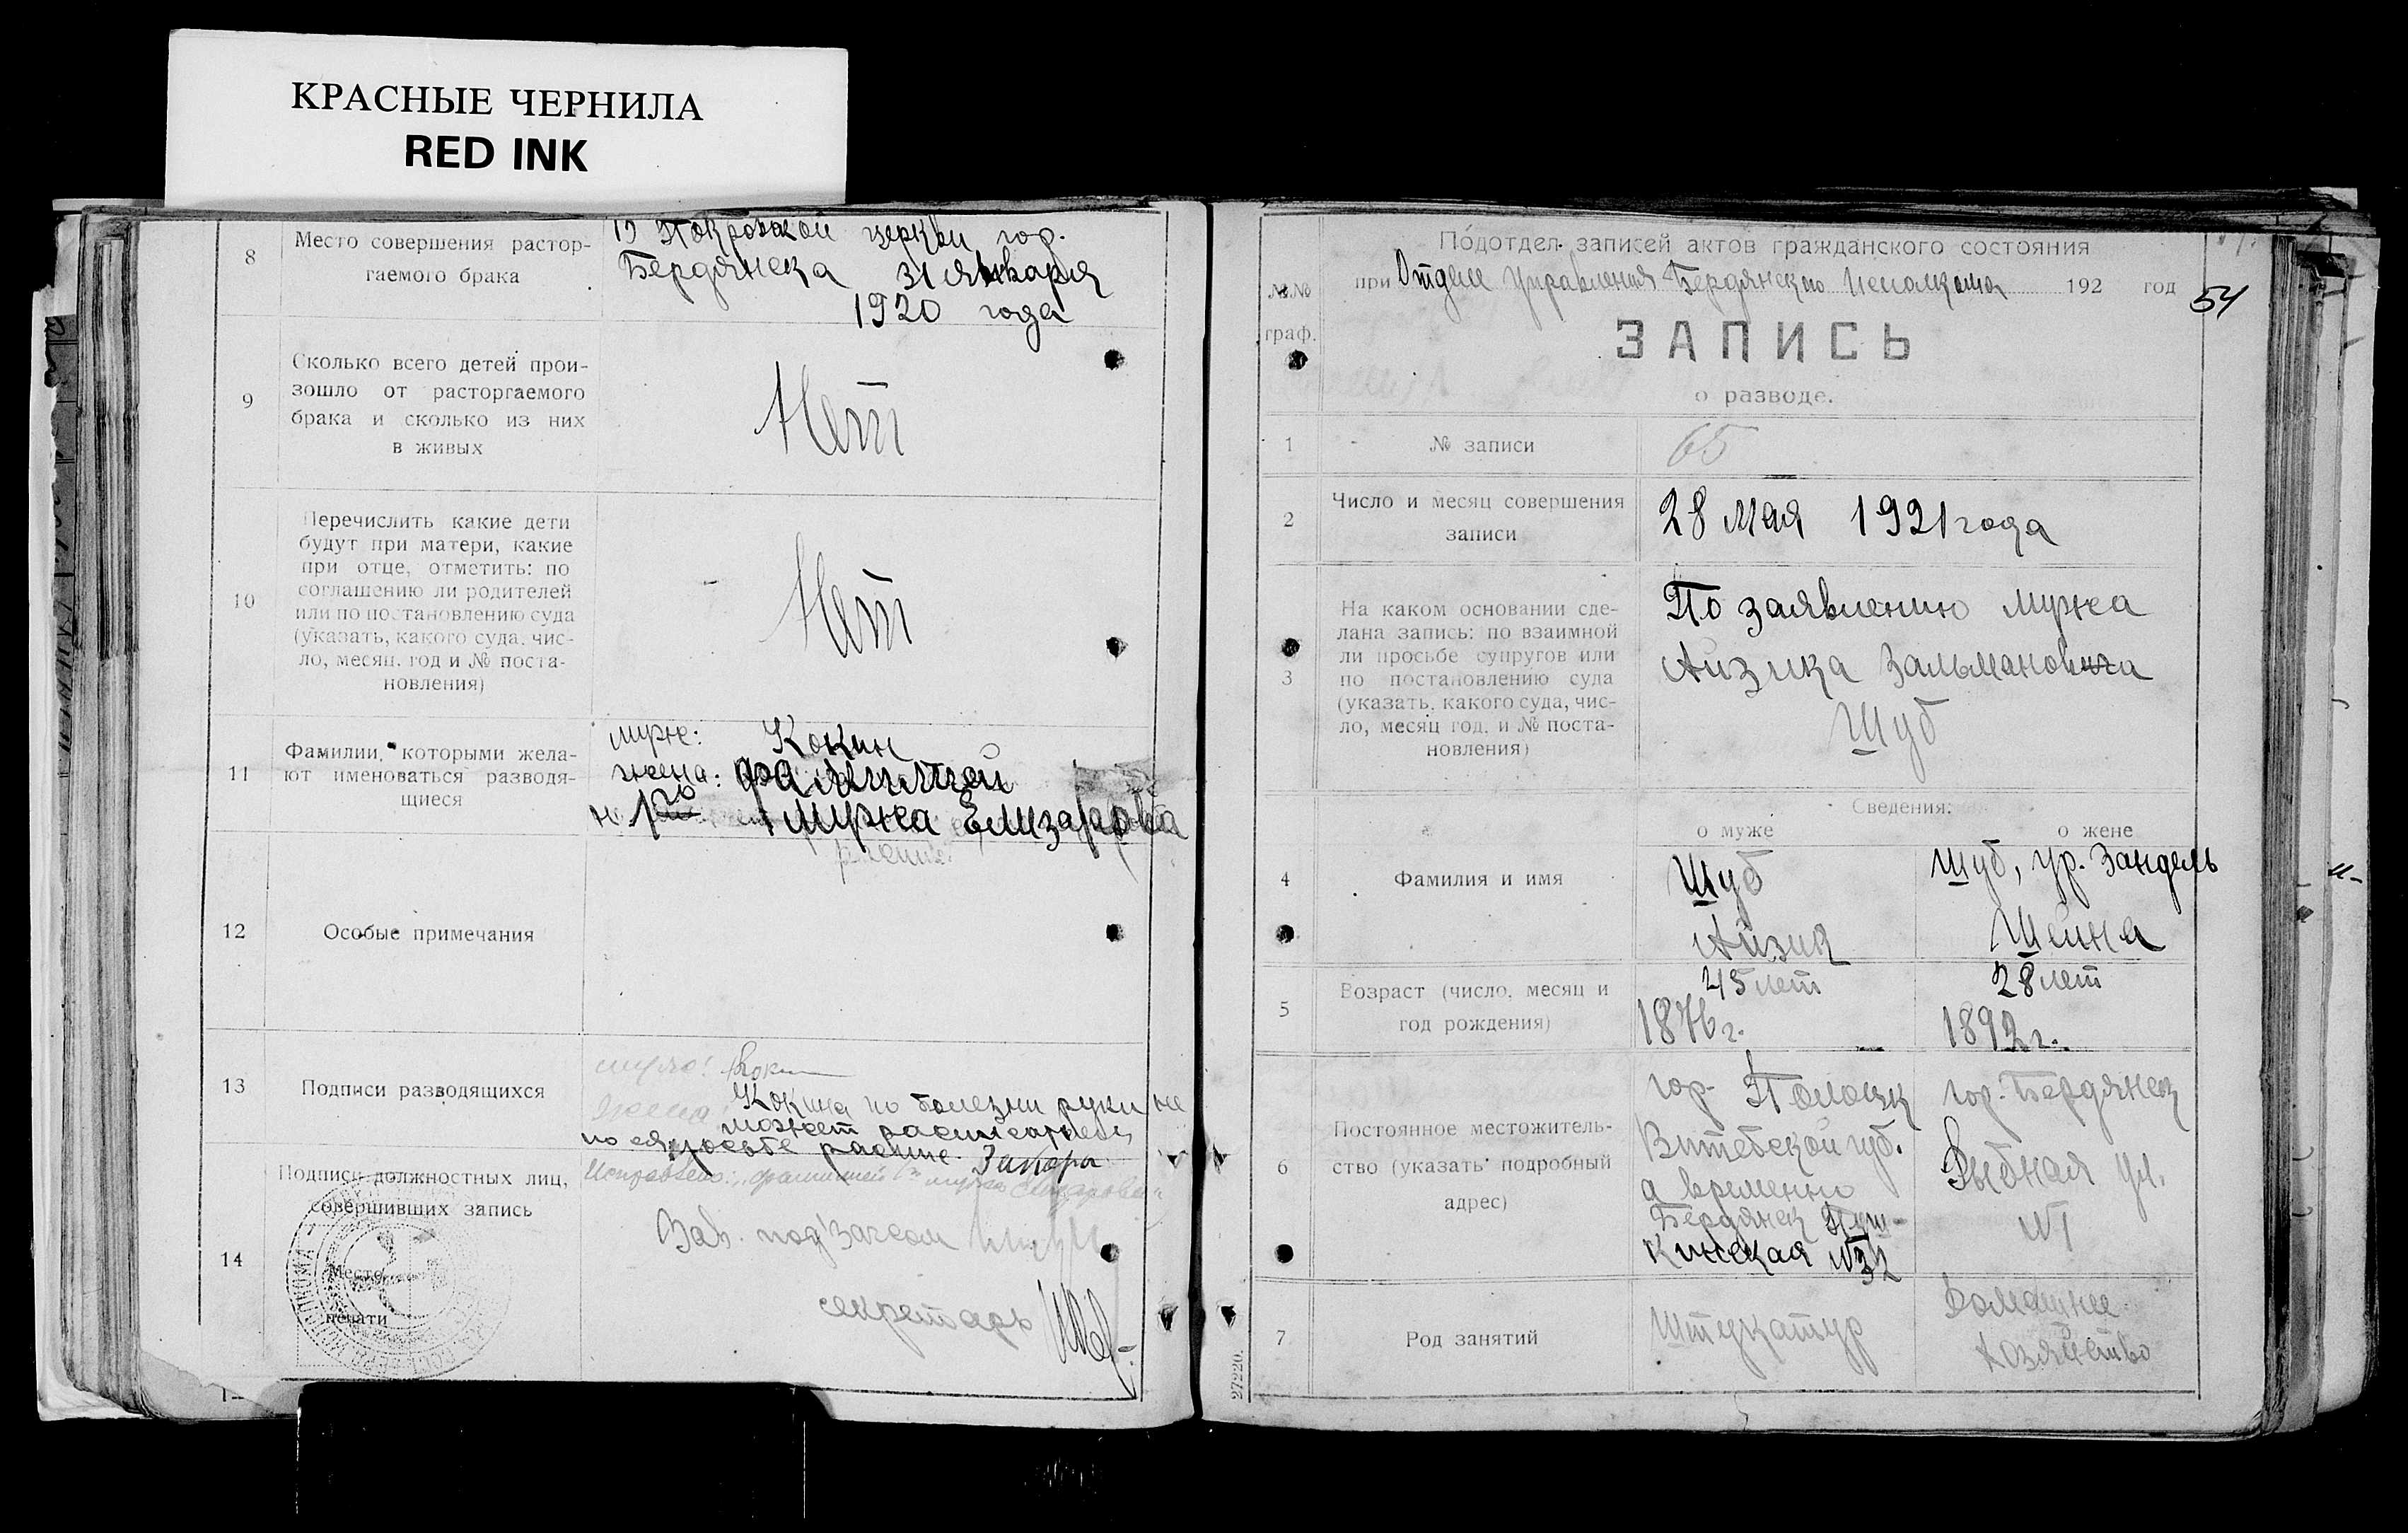 КРАСНЫЕ ЧЕРНИЛА
RED INK
8
Место совершения растор-
гаемого брака
В Покровской церкви гор.
Бердянска 31 января
1920 года
9
Сколько всего детей прои-
зошло от расторгаемого
брака и сколько из них
в живых
Нет
10
Перечислить какие дети
будут при матери, какие
при отце, отметить: по
соглашению ли родителей
или по постановлению суда
(указать, какого суда, чис-
ло, месяц, год и № поста-
новления)
Нет
11
Фамилии, которыми жела-
ют именоваться разводя-
щиеся
муж: Кокин
жена: фамилией
мужа Елизарова
12
Особые примечания
13
Подписи разводящихся
Кокина по болезни руки не
может расписаться,
по ея просьбе распис.
14
Подписи должностных лиц,
совершивших запись
Место
печати
Исправлено: фамилией мужа Елизарова
Зав. подзагсом
секретарь
Подотдел записей актов гражданского состояния
при Отделе Управления Бердянского Исполкома 192 год
54
№№
граф.
ЗАПИСЬ
о разводе.
1
№ записи
65
2
Число и месяц совершения
записи
28 мая 1921 года
3
На каком основании сде-
лана запись: по взаимной
ли просьбе супругов или
по постановлению суда
(указать, какого суда, чис-
ло, месяц год, и № поста-
новления)
По заявлению мужа
Айзика Зальмановича
Шуб
Сведения:
о муже
о жене
4
Фамилия и имя
Шуб
Айзик
Шуб, ур. Зандель
Шейна
5
Возраст (число, месяц и
год рождения)
45 лет
1876 г.
28 лет
1892 г.
6
Постоянное местожитель-
ство (указать подробный
адрес)
гор. Полоцк
Витебской губ.
а временно
Бердянск Пуш-
кинская №32
гор. Бердянск
Рыбная ул.
№1
7
Род занятий
Штукатур
Домашнее
хозяйство
27220.